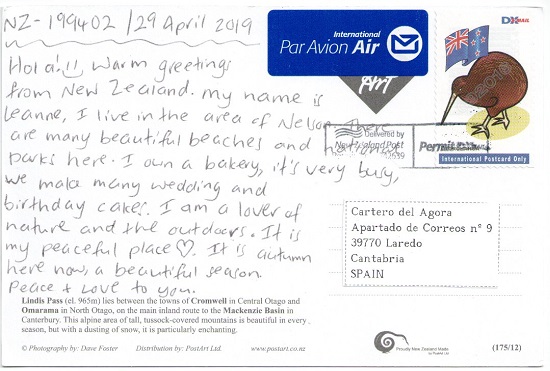 NZ-199402 / 29 April 2019
Hola!! Warm greetings
from New Zealand. My name is
Leanne, I live in the area of Nelson. There
are many beautiful beaches and national
parks here. I own a bakery, it's very busy,
we make many wedding and
birthday cakes. I am a lover of
nature and the outdoors. It is
my peaceful place♡. It is autumn
here now, a beautiful season.
Peace + Love to you.
Lindis Pass (el. 965m) lies between the towns of Cromwell in Central Otago and
Omarama in North Otago, on the main inland route to the Mackenzie Basin in
Canterbury. This alpine area of tall, tussock-covered mountains is beautiful in every
season, but with a dusting of snow, it is particularly enchanting.
© Photography by: Dave Foster Distribution by: PostArt Ltd. www.postart.co.nz
International
Par Avion Air
Art
DX MAIL
Delivered by
New Zealand Post
Permit
International Postcard Only
Cartero del Agora
Apartado de Correos nº 9
39770 Laredo
Cantabria
SPAIN
Proudly New Zealand Made
by PostArt Ltd
(175/12)